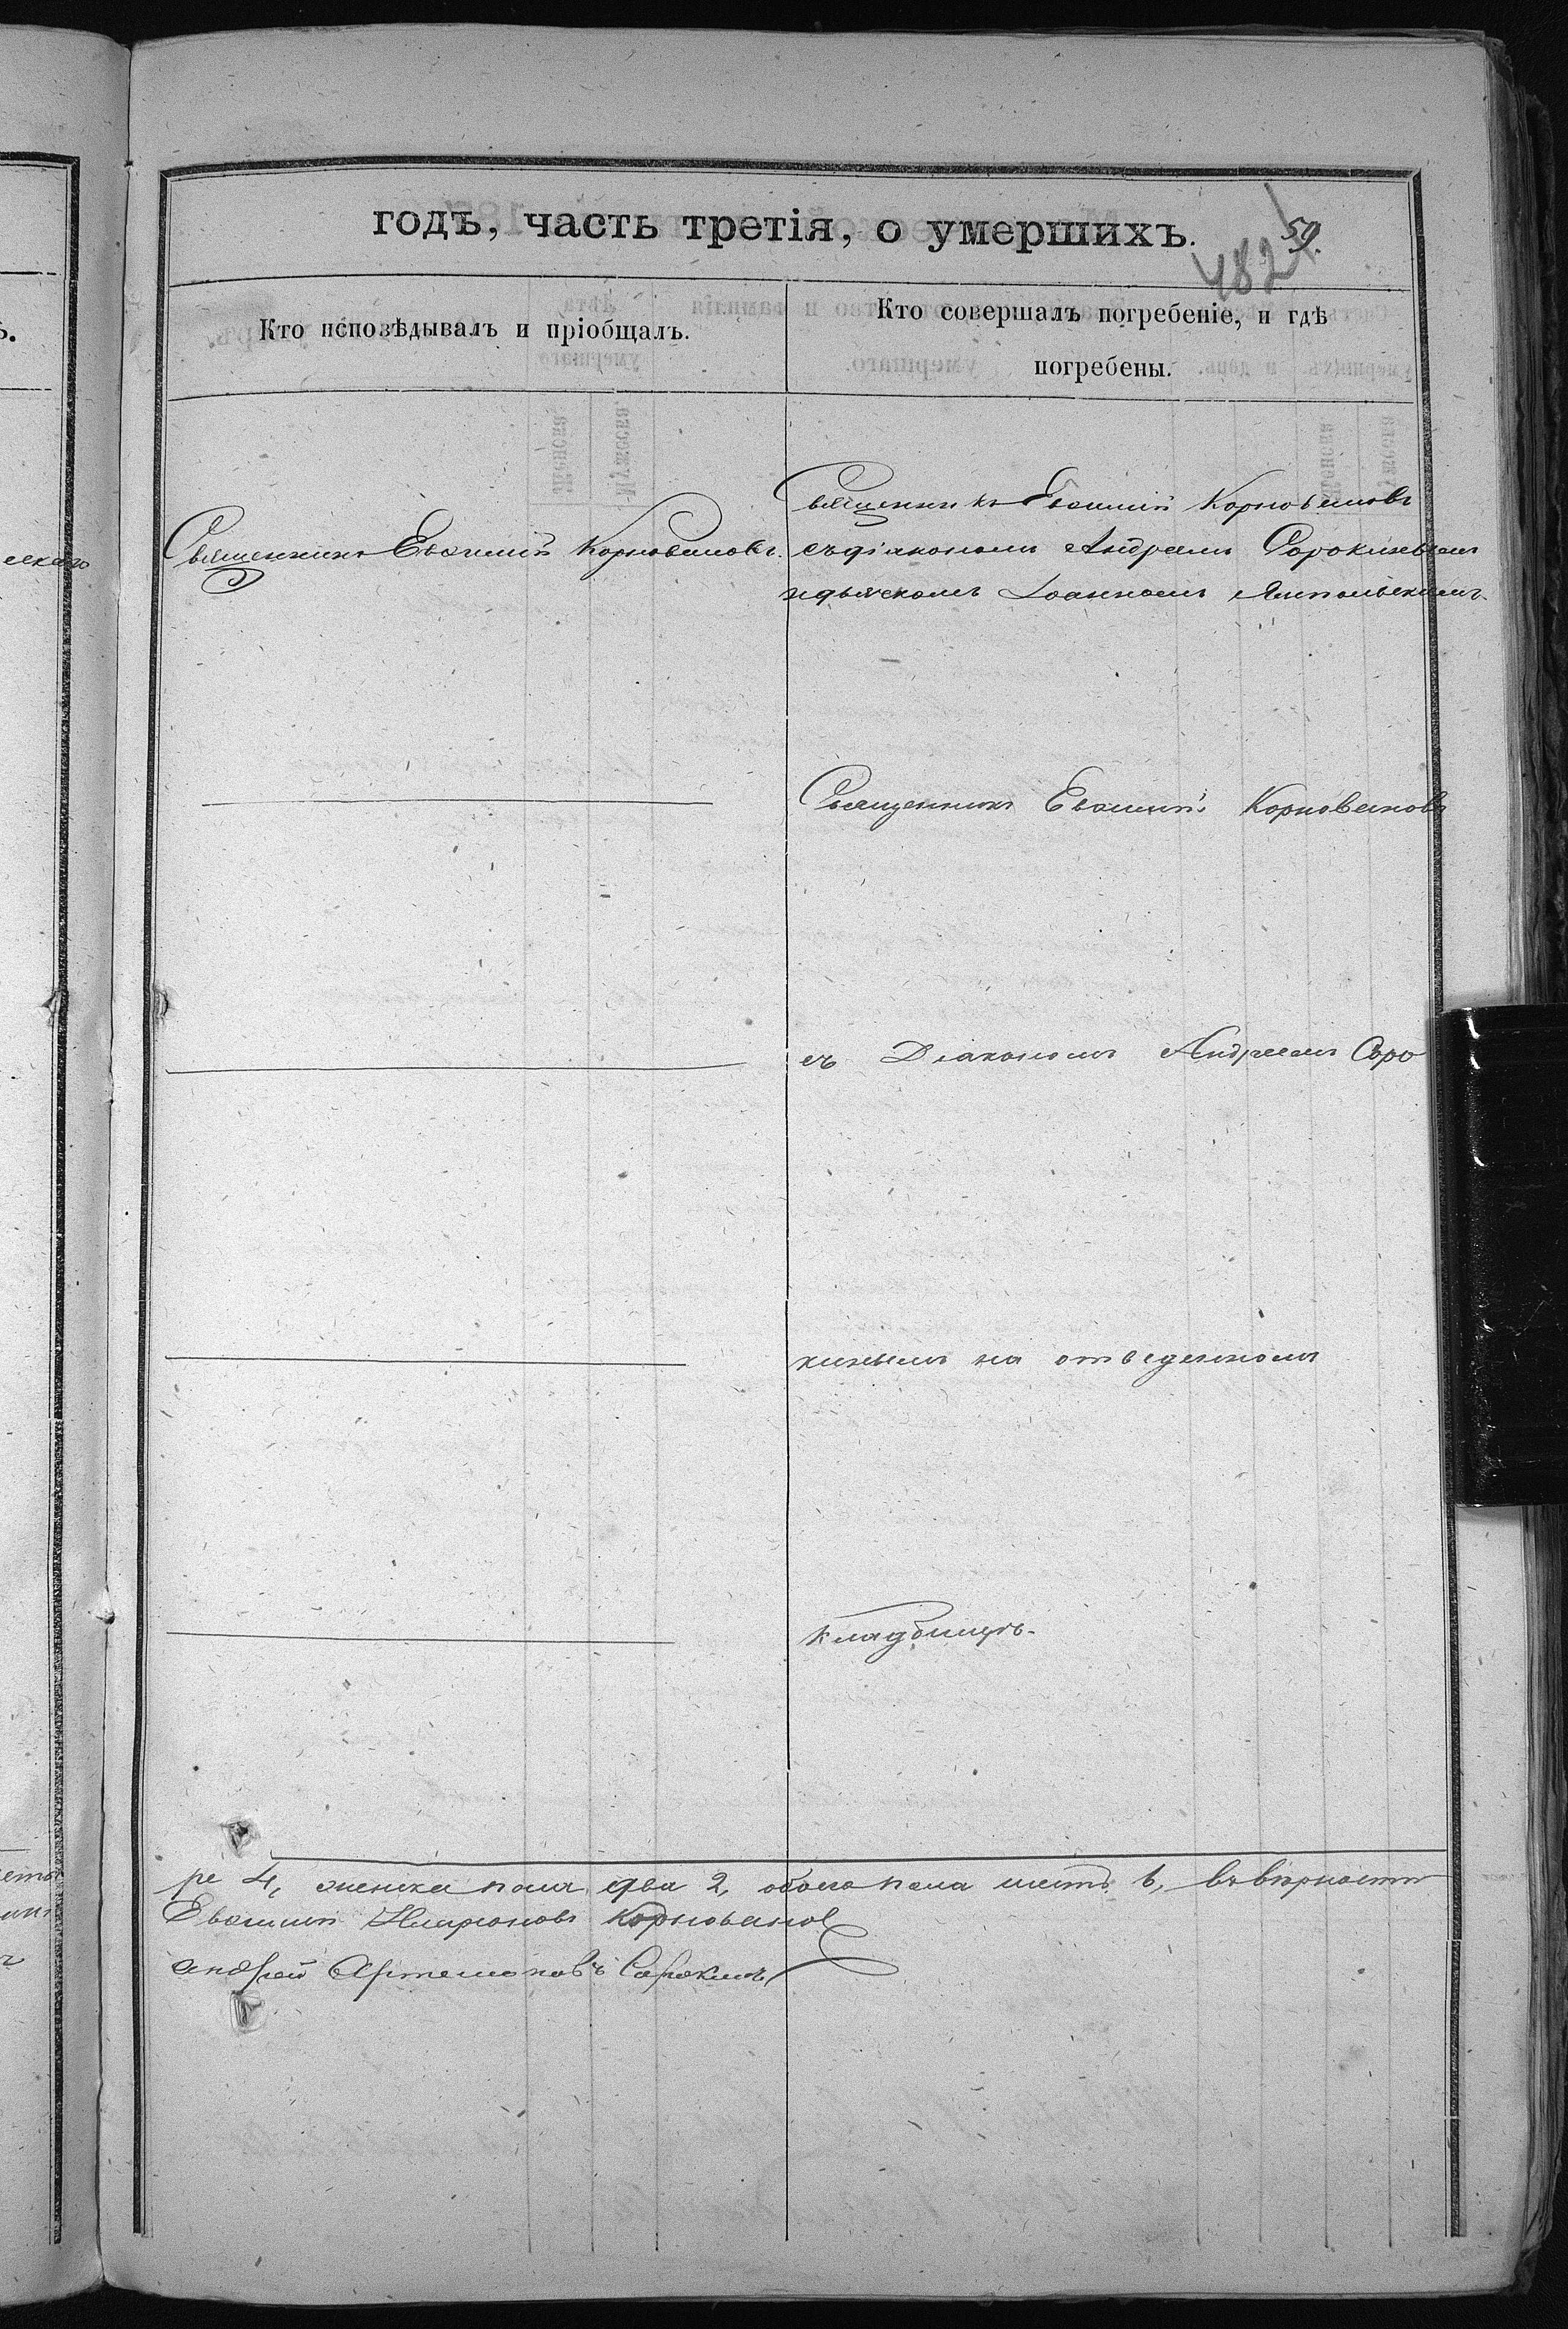 годъ, часть третія, о умершихъ.
59.
482
Кто исповѣдывалъ и пріобщалъ.
Кто совершалъ погребеніе, и гдѣ
погребены.
Священникъ Евѳимій Корноваловъ
Священникъ Евѳимій Корноваловъ.
съ діакономъ Андреемъ Сорокинымъ
и дьячкомъ Іоанномъ Ямпольскимъ.
Священникъ Евѳимій Корноваловъ
съ Діакономъ Андреемъ Соро
кинымъ на отведенномъ
кладбищѣ.
ре 4, женска пола два 2, обоего пола шесть 6, въ вѣрности
Евѳимій Корновалов
Андрей Артемоновъ Сорокинъ